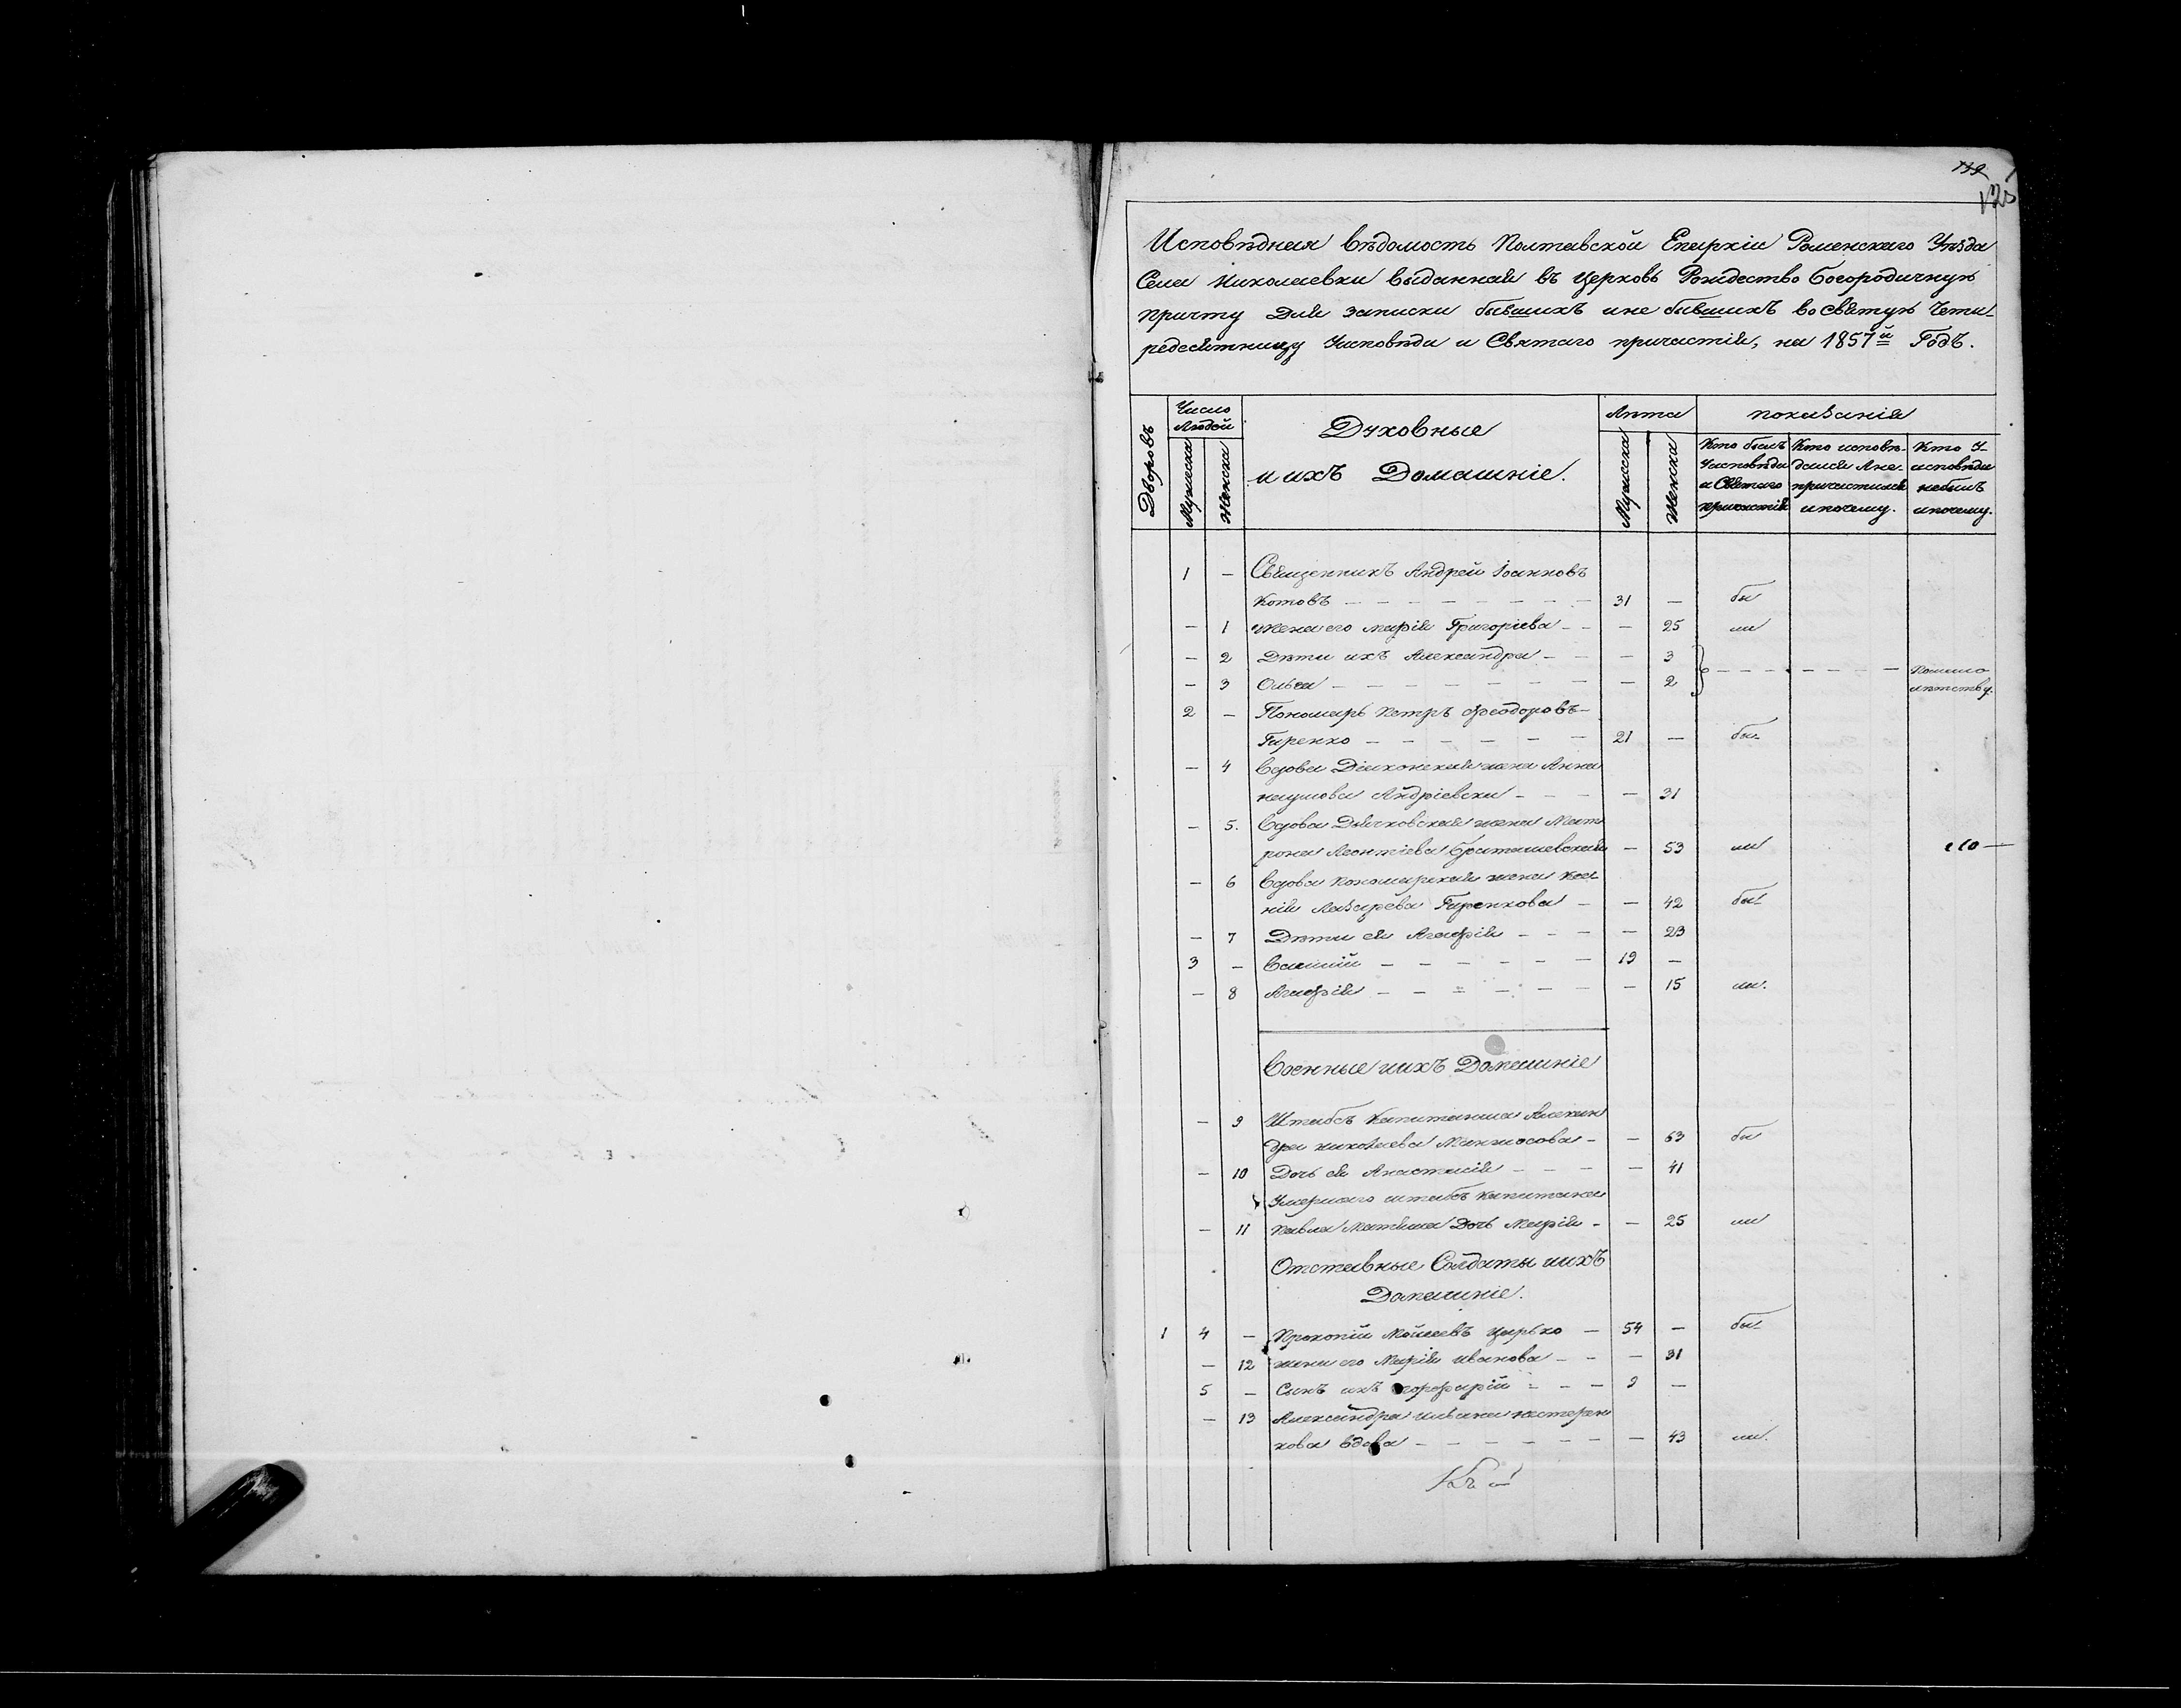 Исповѣдная вѣдомость Полтавской Епархіи Роменскаго Уѣзда
Села Николаевки выданная въ Церковь Рождество Богородичную
причту Для записки бывшихъ и не бывшихъ во святую Чети-
редесятницу Уисповѣди и Святаго причастія, на 1857й Годъ.
Дворовъ
Число Людей
Мужеска
Женска
Духовные
и ихъ Домашніе.
Лѣта
Мужеска
Женска
показанія
Кто былъ Уисповѣди и Святаго причастія
Кто исповѣ- дался Ане- причастился и почему.
Кто У- исповѣди небылъ и почему.
1 — Священникъ Андрей Іоанновъ
Котовъ — 31 — бы
— 1 Жена его марія Григоріева — — 25 ли
— 2 Дѣти ихъ Александра — — 3
— 3 Ольга — — 2 Помало лѣтству.
2 — Пономарь Петръ Феодоровъ
Гиренко — 21 — бы-
— 4 Вдова Діаконская жена Анна
наумова Андріевска — — 31
— 5. Вдова Дьячковская жена Мат
рона Леонтіева Браташевская — 53 ли
— 6 Вдова пономарская жена
Лазарева Гиренкова — — 42 бы-
— 7 Дѣти ея Агафія — — 23
3 — Василій — 19 —
— 8 Агафія — — 15 ли.
Военные иихъ Домашніе
— 9 Штабсъ Капитанша Алексан
дра николаева — — 63 бы
— 10 Дочь ея Анастасія — — 41
Умершаго штабсъ капитана
— 11 Павла Дочь Марія — — 25 ли
Отставные Солдаты иихъ
Домашніе.
1 4 — Прокопій Мойсеевъ Царько — 54 — бы-
— 12 жена его Марія иванова — — 31
5 — Сынъ ихъ порфирій — 9 —
— 13 Александра нестерен
кова вдова — — 43 ли.